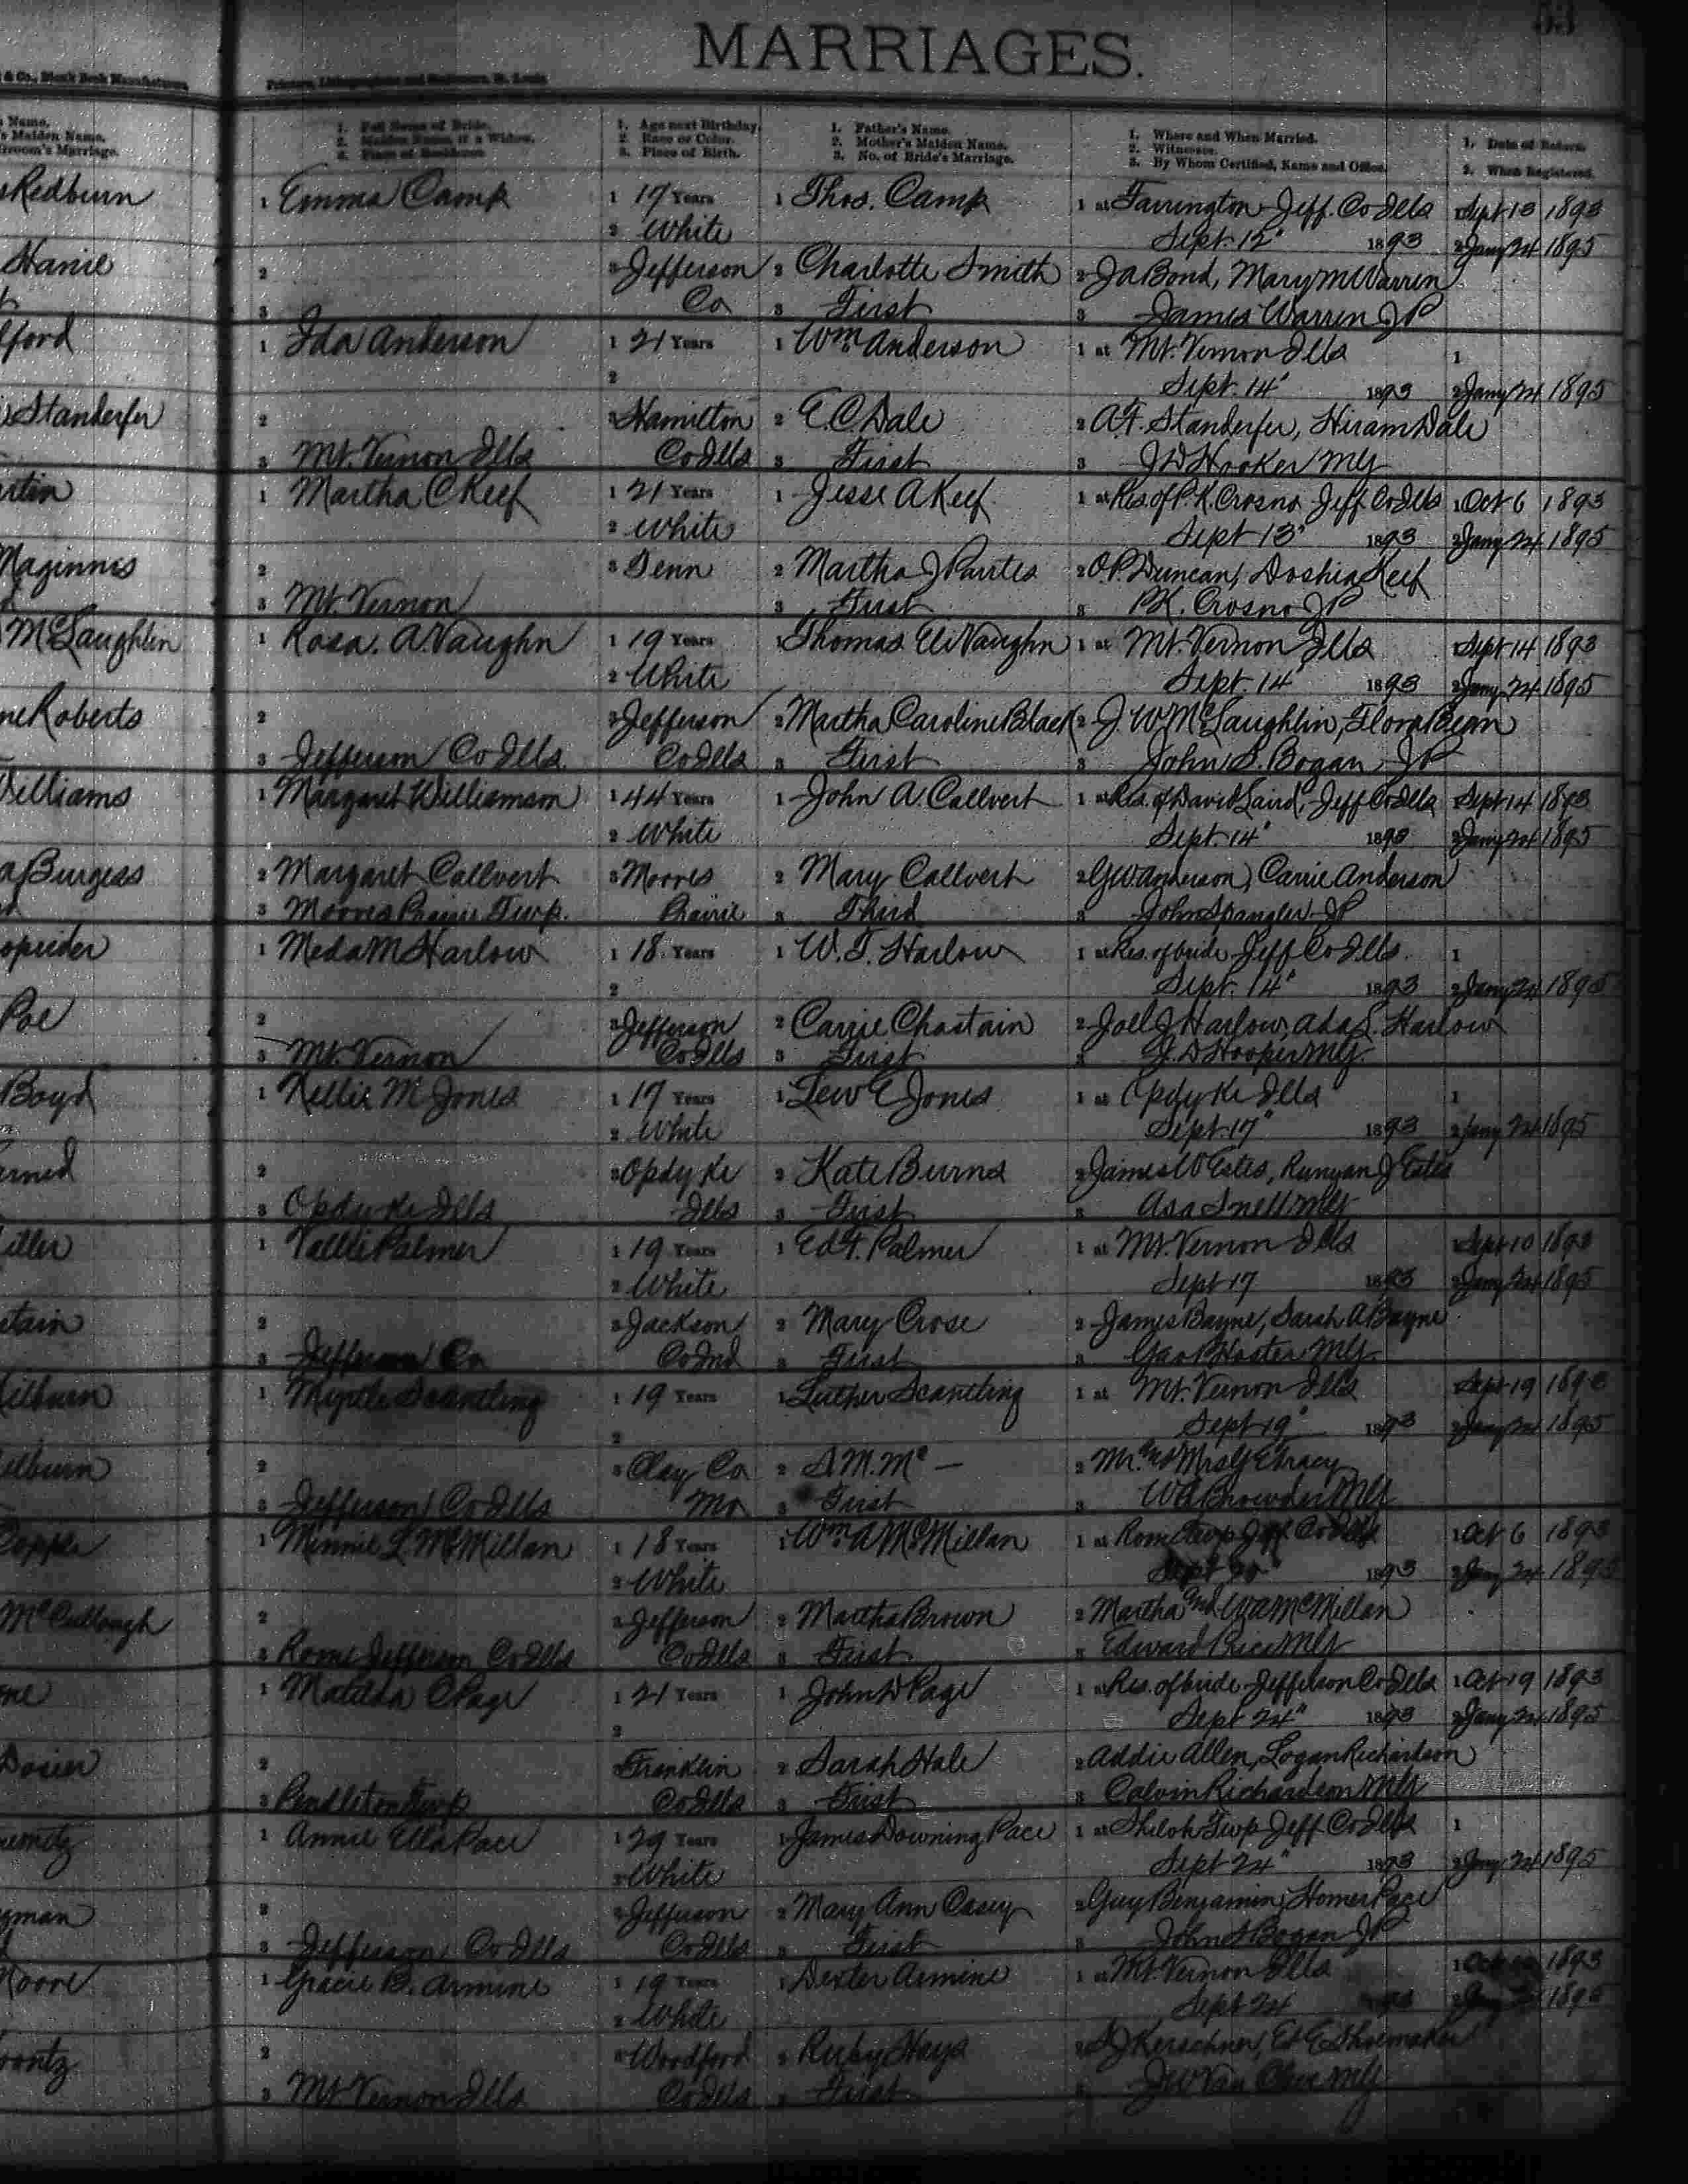 53
MARRIAGES.
& Co., Blank Book Manufacturers,
Printers, Lithographers and Stationers, St. Louis
Name.
's Maiden Name.
Groom's Marriage.
1. Full Name of Bride.
2. Maiden Name, if a Widow.
3. Place of Residence.
1. Age next Birthday.
2. Race or Color.
3. Place of Birth.
1. Father's Name.
2. Mother's Maiden Name.
3. No. of Bride's Marriage.
1. Where and When Married.
2. Witnesses.
3. By Whom Certified, Name and Office.
1. Date of Return.
2. When Registered.
Redburn 1 Emma Camp 1 17 Years 1 Thos. Camp 1 at Farrington Jeff. Co Ills 1 Sept 13 1893
2 White Sept. 12" 1893 2 Jany 24 1895
Hanie 2 3 Jefferson 2 Charlotte Smith 2 Ja Bond, Mary M Warren
3 Co 3 First 3 James Warren JP
ford 1 Ida Anderson 1 21 Years 1 Wm Anderson 1 at Mt. Vernon Ills 1
2 Sept. 14" 1893 2 Jany 24 1895
Standerfer 2 3 Hamilton 2 E. C. Dale 2 A. F. Standerfer, Hiram Dale
3 Mt. Vernon Ills Co Ills 3 First 3 J D Hooker MG
rtin 1 Martha C Keef 1 21 Years 1 Jesse A Keef 1 at Res. of P. K. Crosno Jeff Co Ills 1 Oct 6 1893
2 White Sept 13" 1893 2 Jany 24 1895
Maginnis 2 3 Tenn 2 Martha J 2 O. P. Duncan, Doshia Keef
3 Mt. Vernon 3 First 3 P K. Crosno JP
McLaughlin 1 Rosa. A. Vaughn 1 19 Years 1 Thomas Eli Vaughn 1 at Mt. Vernon Ills 1 Sept 14 1893
2 White Sept. 14" 1893 2 Jany 24 1895
Roberts 2 3 Jefferson 2 Martha Caroline Black 2 J. W McLaughlin, Flora Bean
3 Jefferson Co Ills. Co Ills 3 First 3 John S. Bogan JP
Williams 1 Margaret Williamson 1 44 Years 1 John A. Callvert 1 at Res. of David Laird, Jeff Co Ills 1 Sept 14 1893
2 White Sept. 14" 1893 2 Jany 24 1895
Burgess 2 Margaret Callvert 3 Moores 2 Mary Callvert 2 G W. Anderson, Carrie Anderson
3 Moores Prairie Twp. Prairie 3 Third 3 John Spangler JP
sprider 1 Meda M Harlow 1 18 Years 1 W. T. Harlow 1 at Res. of bride Jeff Co Ills. 1
2 Sept. 14" 1893 2 Jany 24 1895
Poe 2 3 Jefferson 2 Carrie Chastain 2 Joel J Harlow, Ada L. Harlow
3 Mt. Vernon Co Ills 3 First 3 J. D Hooper MG.
Boyd 1 Nellie M Jones 1 17 Years 1 Lew E Jones 1 at Opdyke Ills 1
2 White Sept 17" 1893 2 Jany 24 1895
2 3 Opdyke 2 Kate Burns 2 James W Estes, Runyan J Estes
3 Opdyke Ills Ills 3 First 3 Asa Snell MG
iller 1 Vallie Palmer 1 19 Years 1 Ed F. Palmer 1 at Mt. Vernon Ills 1 Sept 1893
2 White Sept 17 1893 2 Jany 24 1895
stain 2 3 Jackson 2 Mary Crose 2 James Bayne, Sarah A Bayne
3 Jefferson Co Co Ind 3 First 3 MG.
ilburn 1 Myrtle Scantling 1 19 Years 1 Luther Scantling 1 at Mt. Vernon Ills 1 Sept 19 1893
2 Sept 19" 1893 2 Jany 24 1895
ilburn 2 3 Clay Co 2 S. M. Mc — 2 Mr. and Mrs G E Tracy
3 Jefferson Co Ills Mo 3 First 3 W A Browder MG
Copple 1 Minnie L McMillan 1 18 Years 1 Wm A McMillan 1 at Rome Twp Jeff. Co Ills 1 Oct 6 1893
2 White Sept 20" 1893 2 Jany 24 1895
McCullough 2 3 Jefferson 2 Martha Brown 2 Martha and W A McMillan
3 Rome Jefferson Co Ills Co Ills 3 First 3 Edward Rice MG
1 Matilda C Page 1 21 Years 1 John W Page 1 at Res. of bride Jefferson Co Ills 1 Oct 19 1893
2 Sept 24" 1893 2 Jany 24 1895
Dosier 2 3 Franklin 2 Sarah Hale 2 Addie Allen, Logan Richardson
3 Pendleton Twp Co Ills 3 First 3 Calvin Richardson MG
1 Annie Ella Pace 1 29 Years 1 James Downing Pace 1 at Shiloh Twp Jeff Co Ills 1
2 White Sept 24" 1893 2 Jany 24 1895
gman 2 3 Jefferson 2 Mary Ann Casey 2 Guy Benjamin, Homer Pace
3 Jefferson Co Ills Co Ills 3 First 3 John S Bogan JP
Moore 1 Gracie B. Armine 1 19 Years 1 Dexter Armine 1 at Mt. Vernon Ills 1 Oct 1893
2 White Sept 24 2 Jany 1895
oontz 2 3 Woodford 2 Ruby Hays 2 S J Kerschner, Ed E Shoemaker
3 Mt. Vernon Ills Co Ills 3 First 3 J W Van Cleve MG